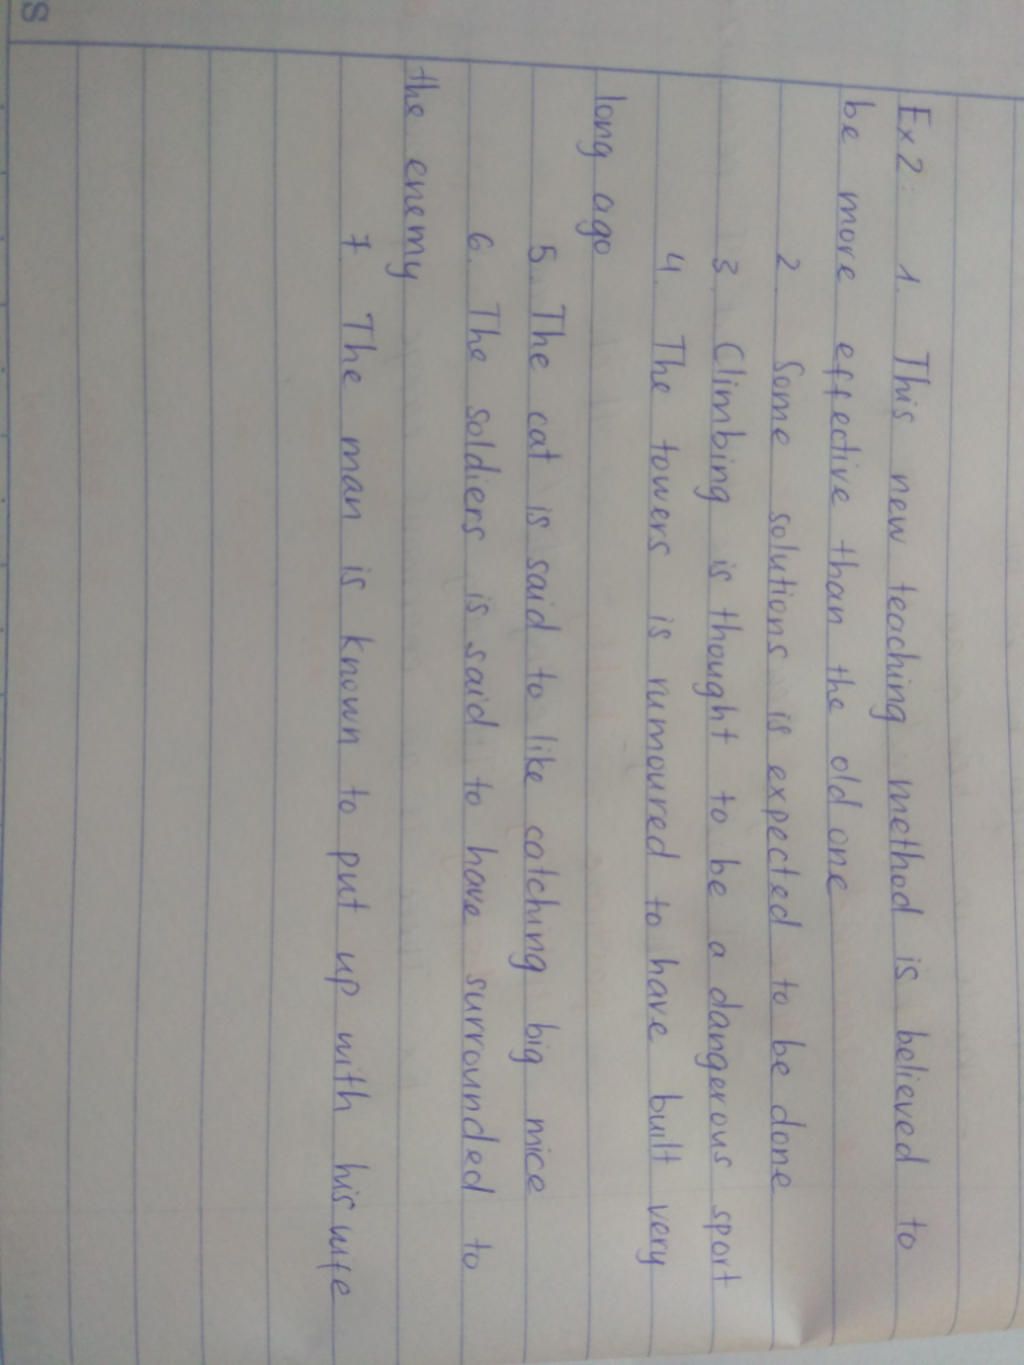 Ex2: 1. This new teaching method is believed to
be more effective than the old one
2. Some solutions is expected to be done
3. Climbing is thought to be a dangerous sport
4. The towers is rumoured to have built very
long ago
5. The cat is said to like catching big mice
6. The soldiers is said to have surrounded to
the enemy
7 The man is known to put up with his wife
S